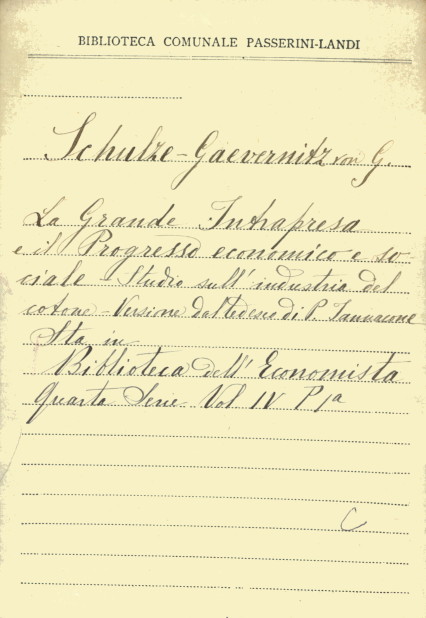 BIBLIOTECA COMUNALE PASSERINI-LANDI
Schulze-Gaevernitz von G.
La Grande Intrapresa
e il Progresso economico e so-
ciale - Studio sull'industria del
cotone - Versione dal tedesco di P. Jannacone
Sta in
Biblioteca dell'Economista
Quarta Serie Vol IV P 1a
C